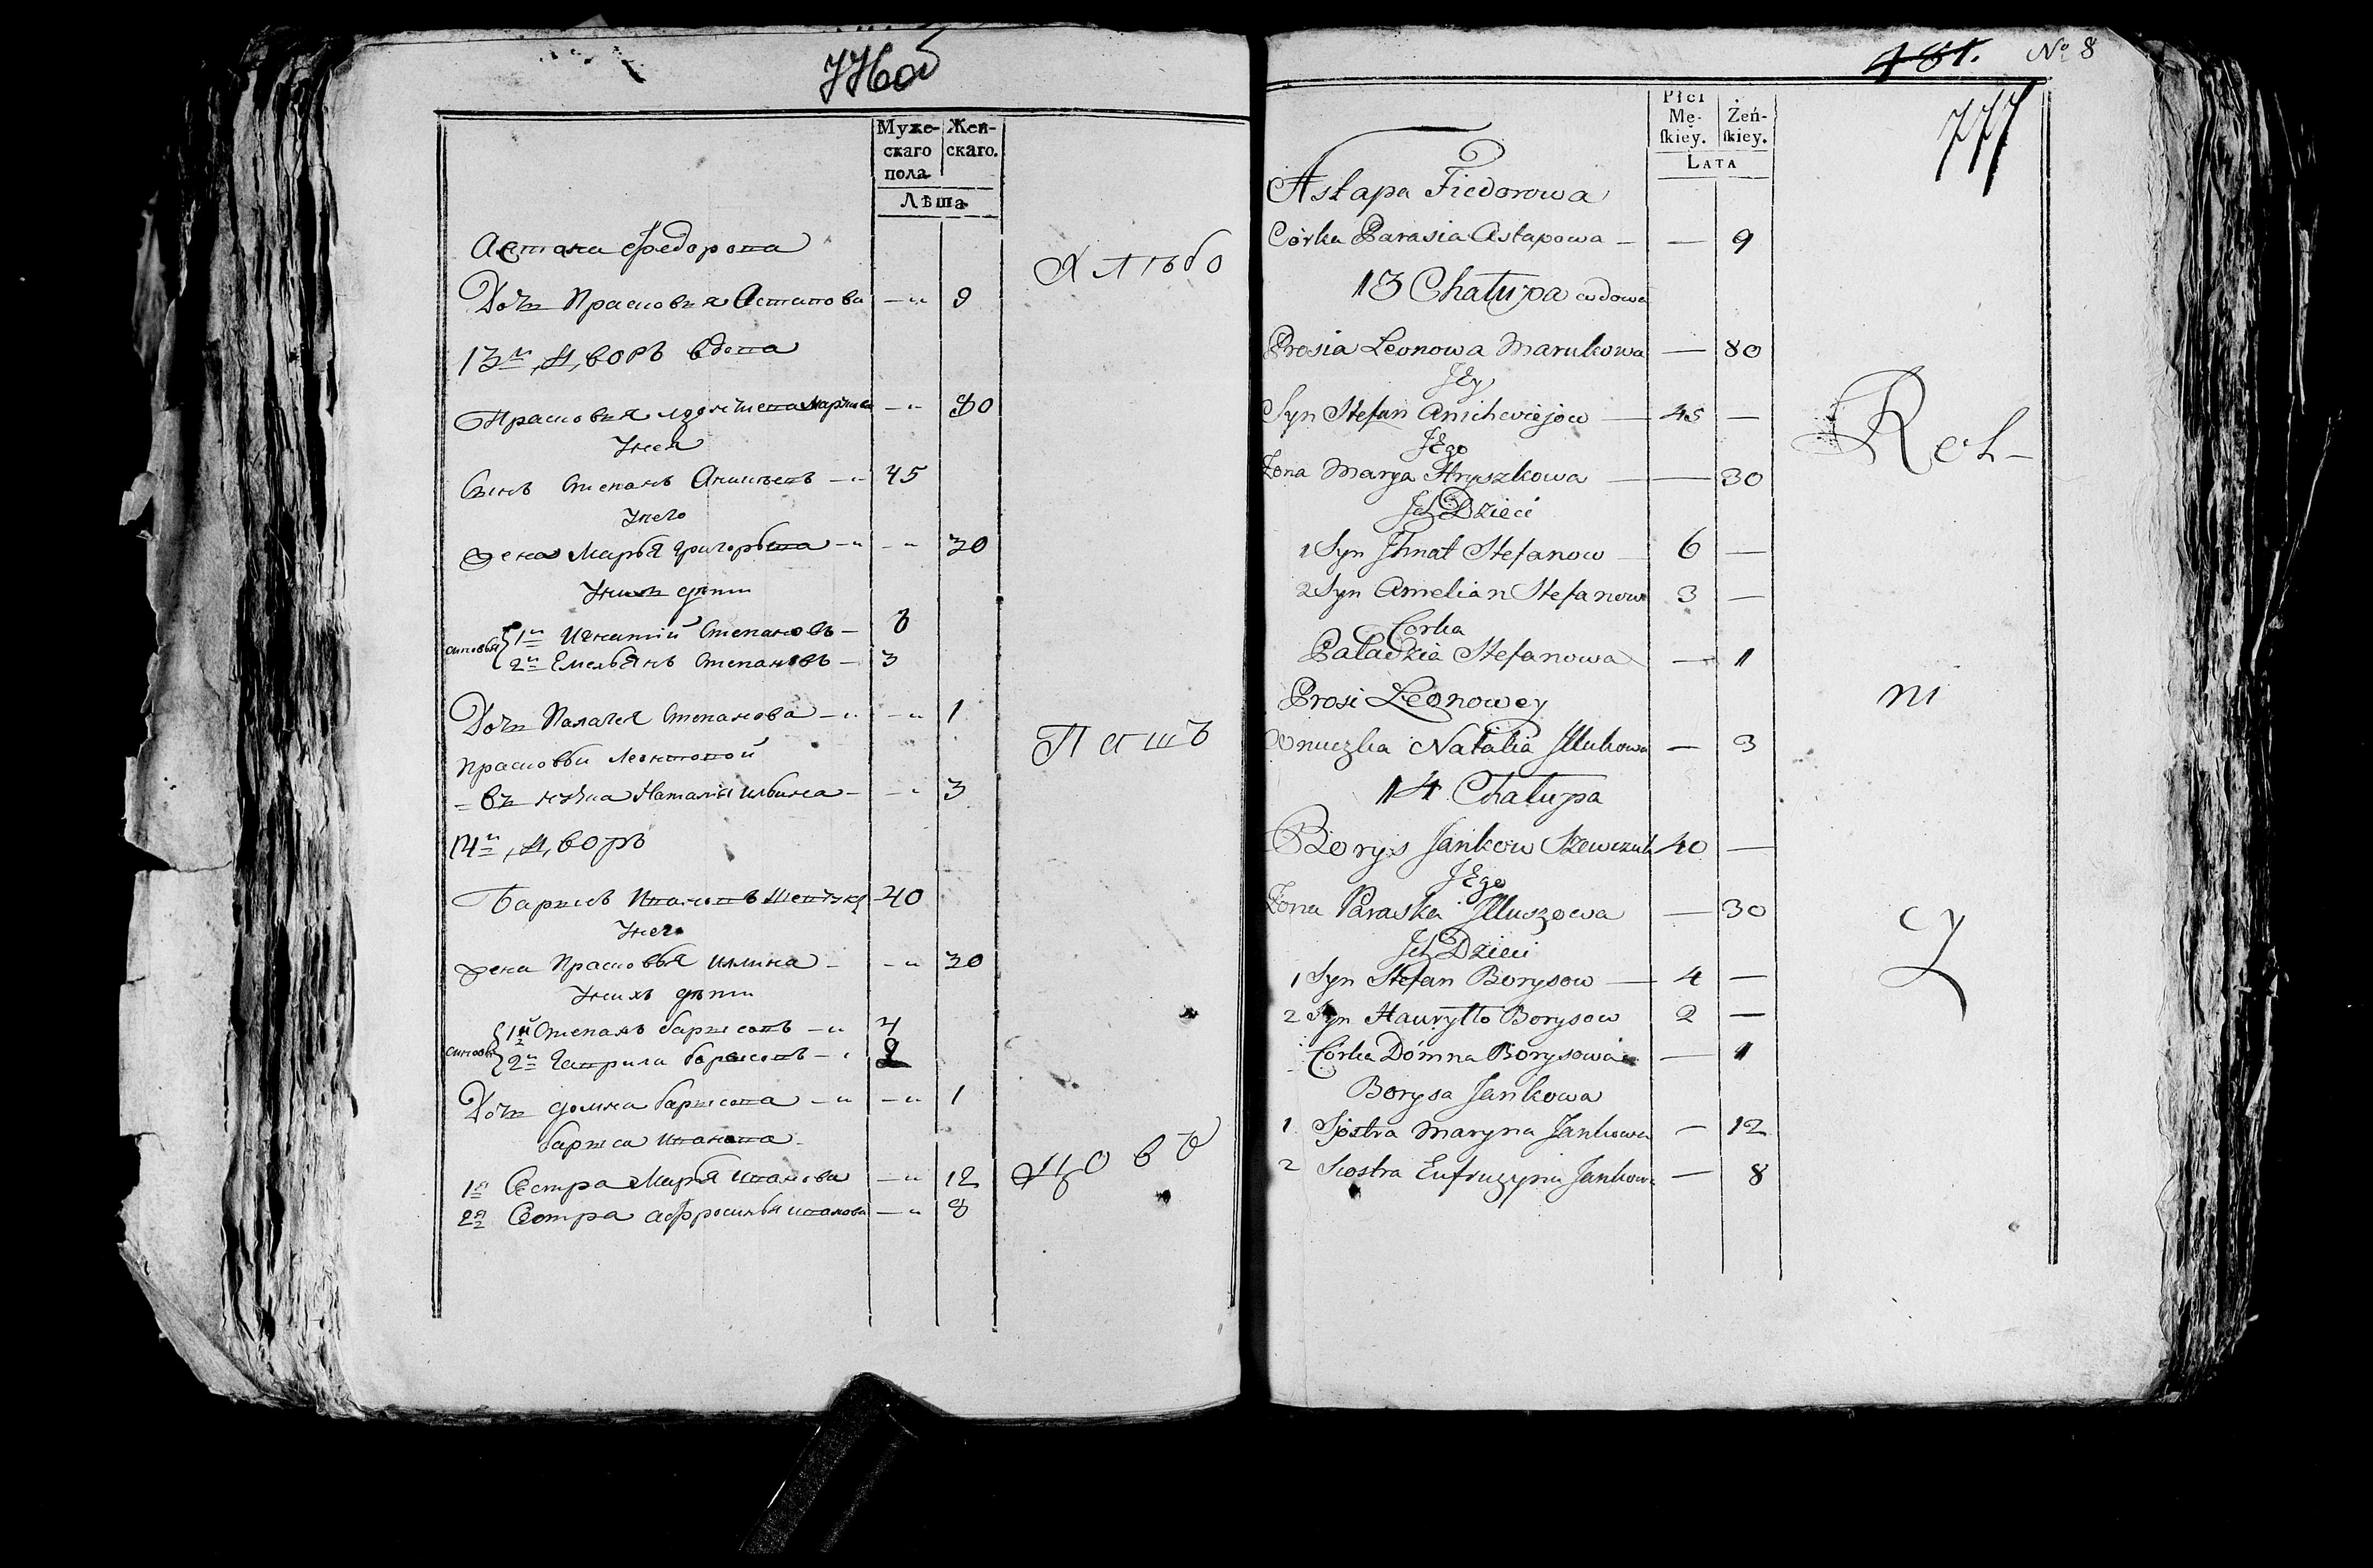 776об
Муже-
скаго
пола
Жен-
скаго.
Лѣта
Астапа Федорова
Дочь Прасковья Астапова — 9
13й Дворъ вдова
Прасковья 80
У нея
Сынъ Степанъ 45
У него
жена Марья Григорьева — 30
У нихъ дѣти
сыновья
1й Игнатій Степановъ — 6
2й Емельянъ Степановъ — 3
Дочь Палагея Степанова — 1
Прасковьи Леоновой
Внучка Наталья Ильина — 3
14й Дворъ
Барисъ Ивановъ Шевчукъ 40
У него
жена Прасковья Илина — 30
У нихъ дѣти
сыновья
1й Степанъ Барисовъ — 4
2й Гаврила Барисовъ — 2
Дочь Домна Барисова — 1
Бариса Иванова
1я Сестра Марья Иванова — 12
2я Сестра Афросинья Иванова — 8
Хлѣбо
Пашъ
цовъ
481. No 8
777
Płci
Mę-
skiey.
Żeń-
skiey.
Lata
Astapa Fiedorowa
Córka Parasia Astapowa — — 9
13 Chałupa wdowa
Prosia Leonowa Marukowa — 80
JEy
Syn Stefan Anichwiejow — 45 —
JEgo
Żona Marya Hryszkowa — — 30
Ich Dzieci
1 Syn Ihnat Stefanow — 6 —
2 Syn Amelian Stefanow 3 —
Corka
Paladzia Stefanowa — 1
Prosi Leonowey
Wnuczka Natalia Illukowa — 3
14 Chałupa
Borys Jankow Szewczuk 40 —
JEgo
Żona Paraska Illuszowa — 30
Ich Dzieci
1 Syn Stefan Borysow — 4 —
2 Syn Hawryłło Borysow 2 —
Córka Dómna Borysowa — 1
Borysa Jankowa
1 Siostra Maryna Jankowa — 12
2 Siostra Eufruzyna Jankowa — 8
Rol-
ni
cy